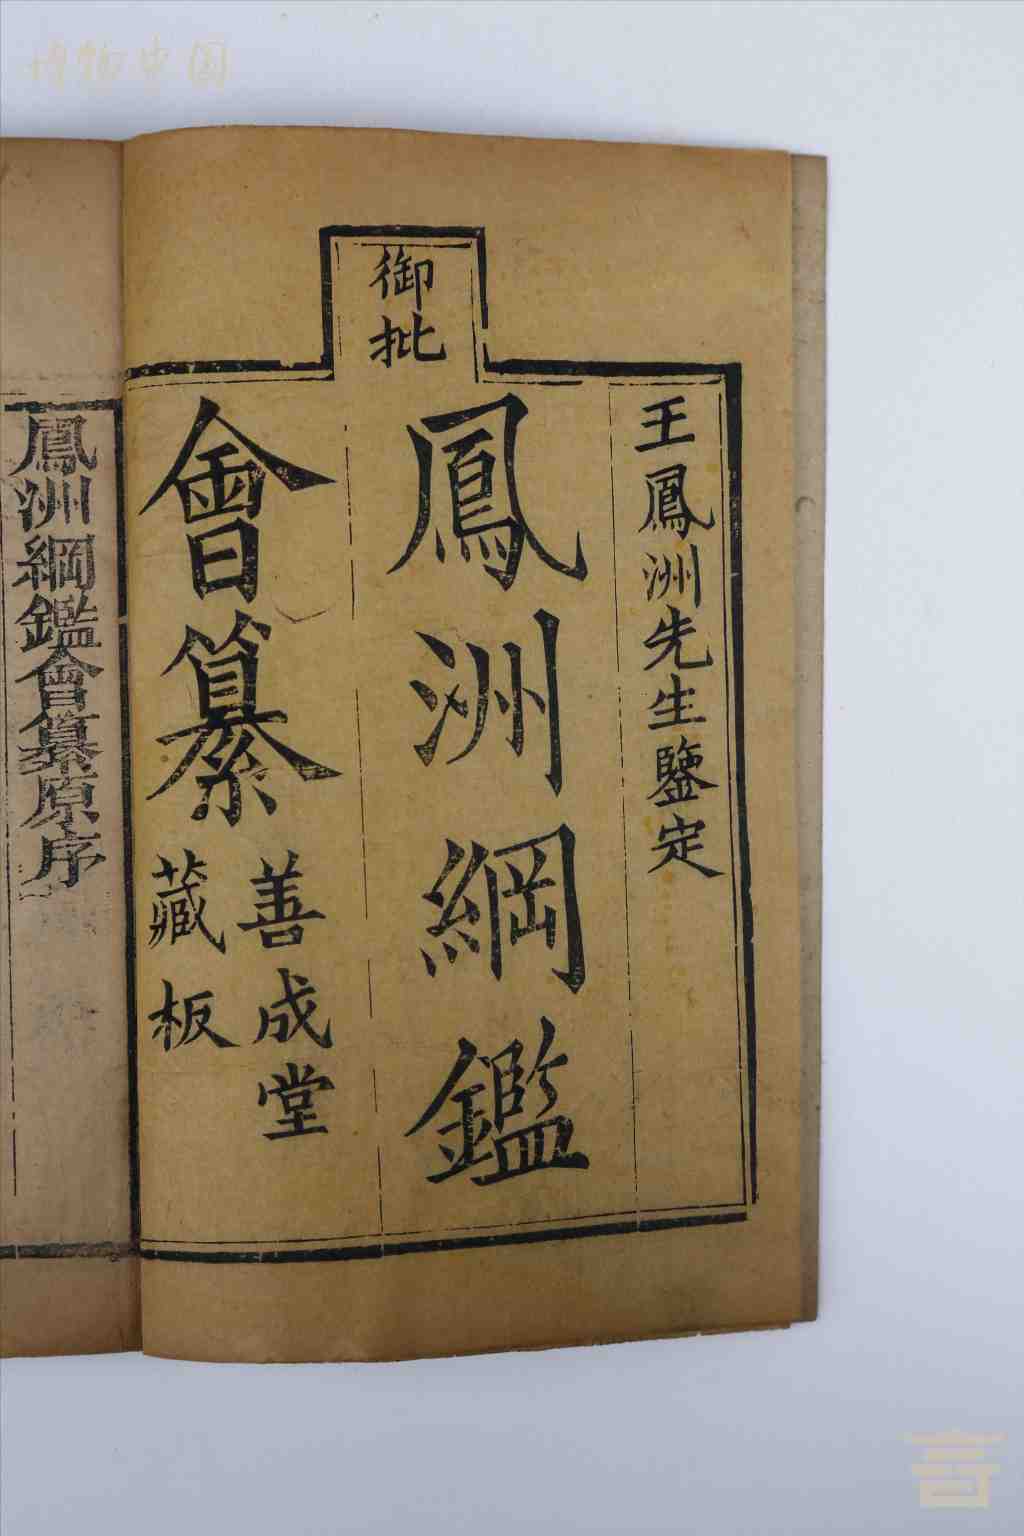 博物中国
御批
王鳳洲先生鑒定
鳳洲綱鑑
會纂
善成堂
藏板
鳳洲綱鑑會纂原序